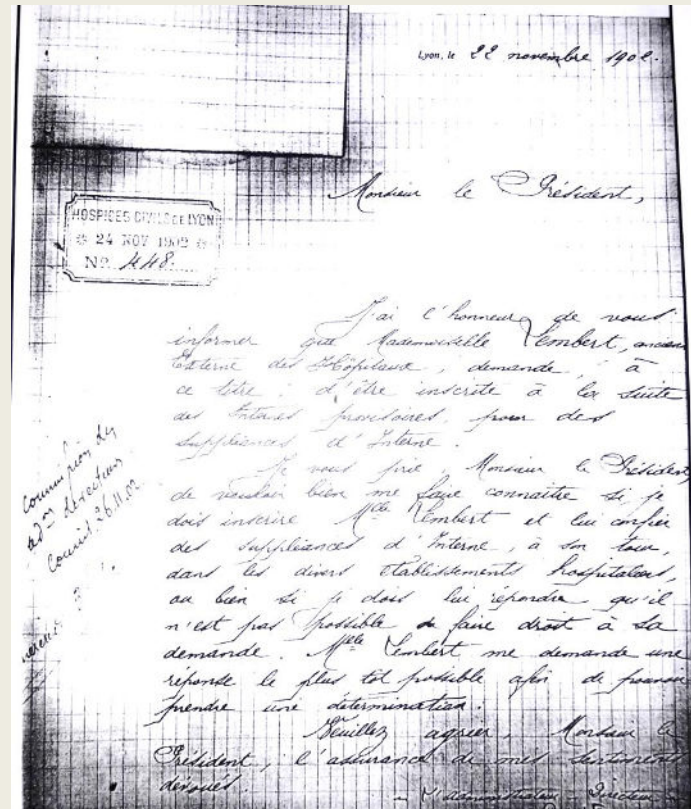 Lyon, le 22 novembre 1902.
Monsieur le Président,
HOSPICES CIVILS DE LYON
24 NOV 1902
No 448
J'ai l'honneur de vous
informer que Mademoiselle Lembert, ancien
Externe des Hôpitaux, demande, à
ce titre, d'être inscrite à la suite
des Internes provisoires, pour des
suppléances d'Interne.
Je vous prie, Monsieur le Président,
de vouloir bien me faire connaître si je
dois inscrire Mlle Lembert et lui confier
des suppléances d'Interne, à son tour,
dans les divers établissements hospitaliers,
ou bien si je dois lui répondre qu'il
n'est pas possible de faire droit à sa
demande. Mlle Lembert me demande une
réponse le plus tôt possible afin de pouvoir
prendre une détermination.
Veuillez agréer, Monsieur le
Président, l'assurance de mes sentiments
dévoués.
L'administrateur-Directeur
commission des
adm directeurs
26.11.02